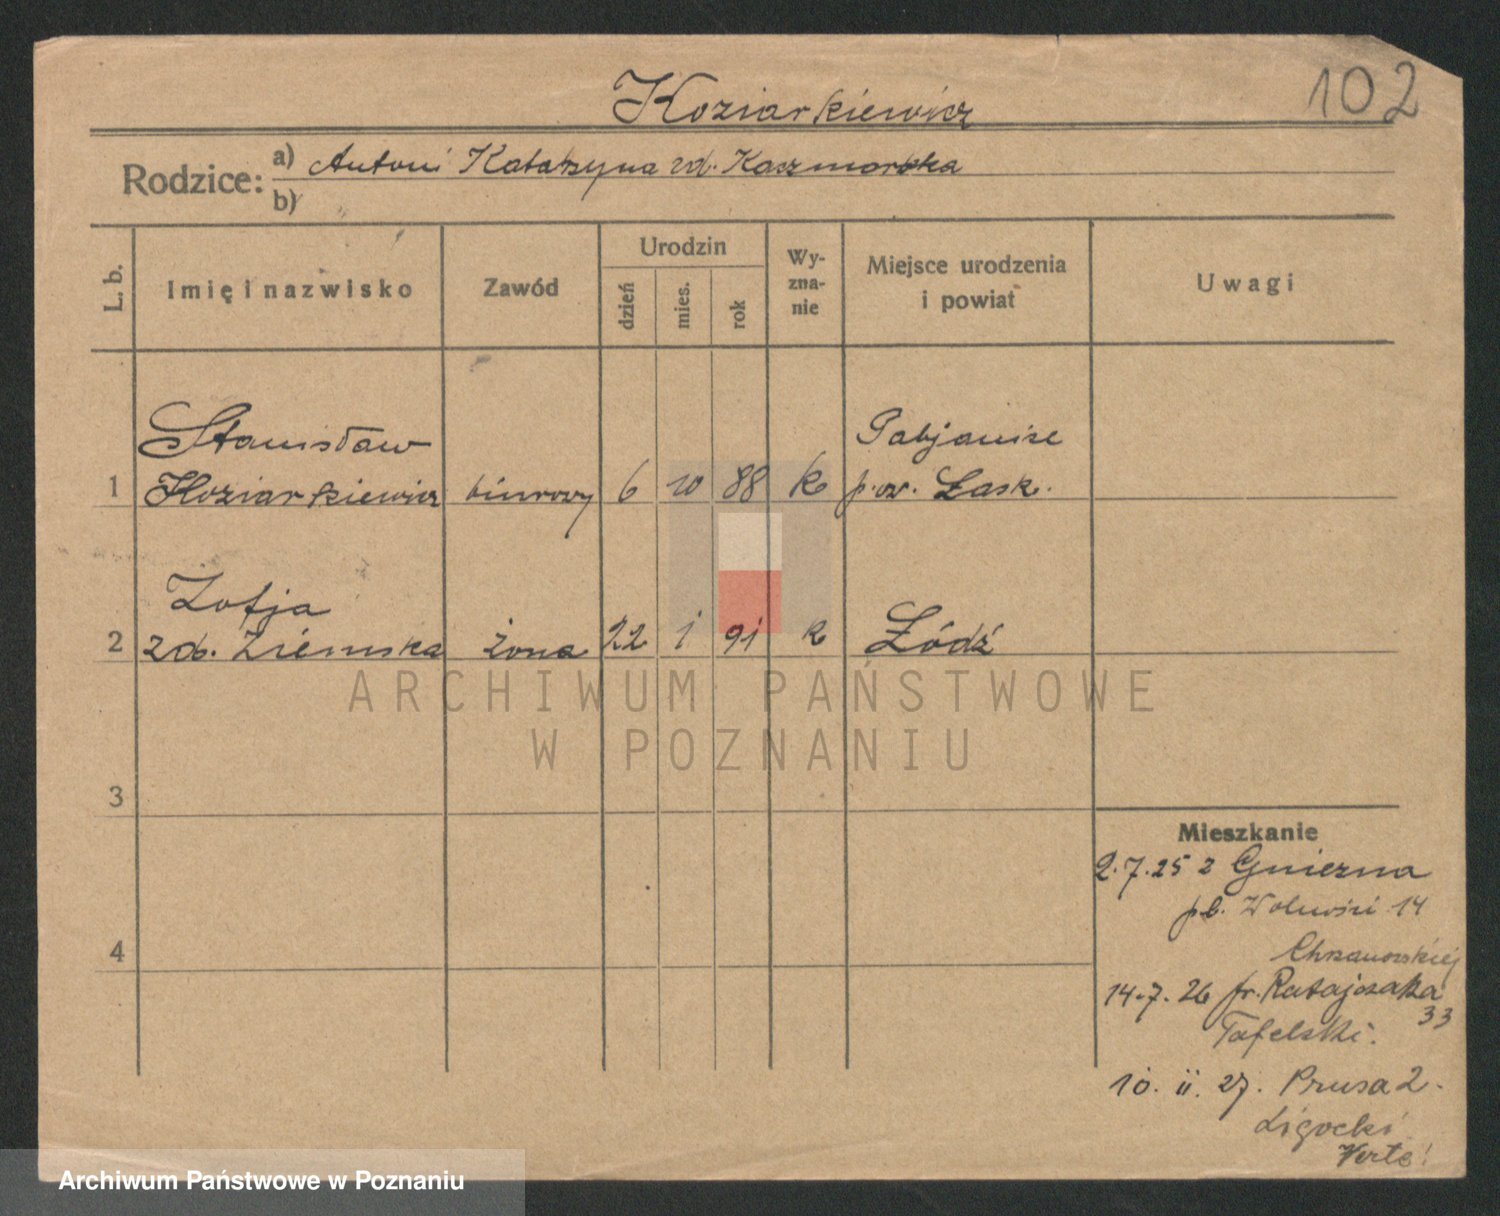 102
Koziarkiewicz
Rodzice: a) Antoni Katarzyna zd. Kaczmarska
b)
L. b.
Imię i nazwisko
Zawód
Urodzin
dzień
mies.
rok
Wy-
zna-
nie
Miejsce urodzenia
i powiat
Uwagi
Stanisław
Pabjanice
1 Koziarkiewicz biurowy 6 10 88 k pow. Łask.
Zofja
2 zd. Ziemska żona 22 1 91 k Łódź
ARCHIWUM PAŃSTWOWE
W POZNANIU
3
4
Mieszkanie
2.7.25 z Gniezna
pl. 14
Chrzanowskiej
14.7.26 fr. Ratajczaka
33
Tafelski.
10. 11. 27. Prusa 2.
Ligocki
Verte!
Archiwum Państwowe w Poznaniu